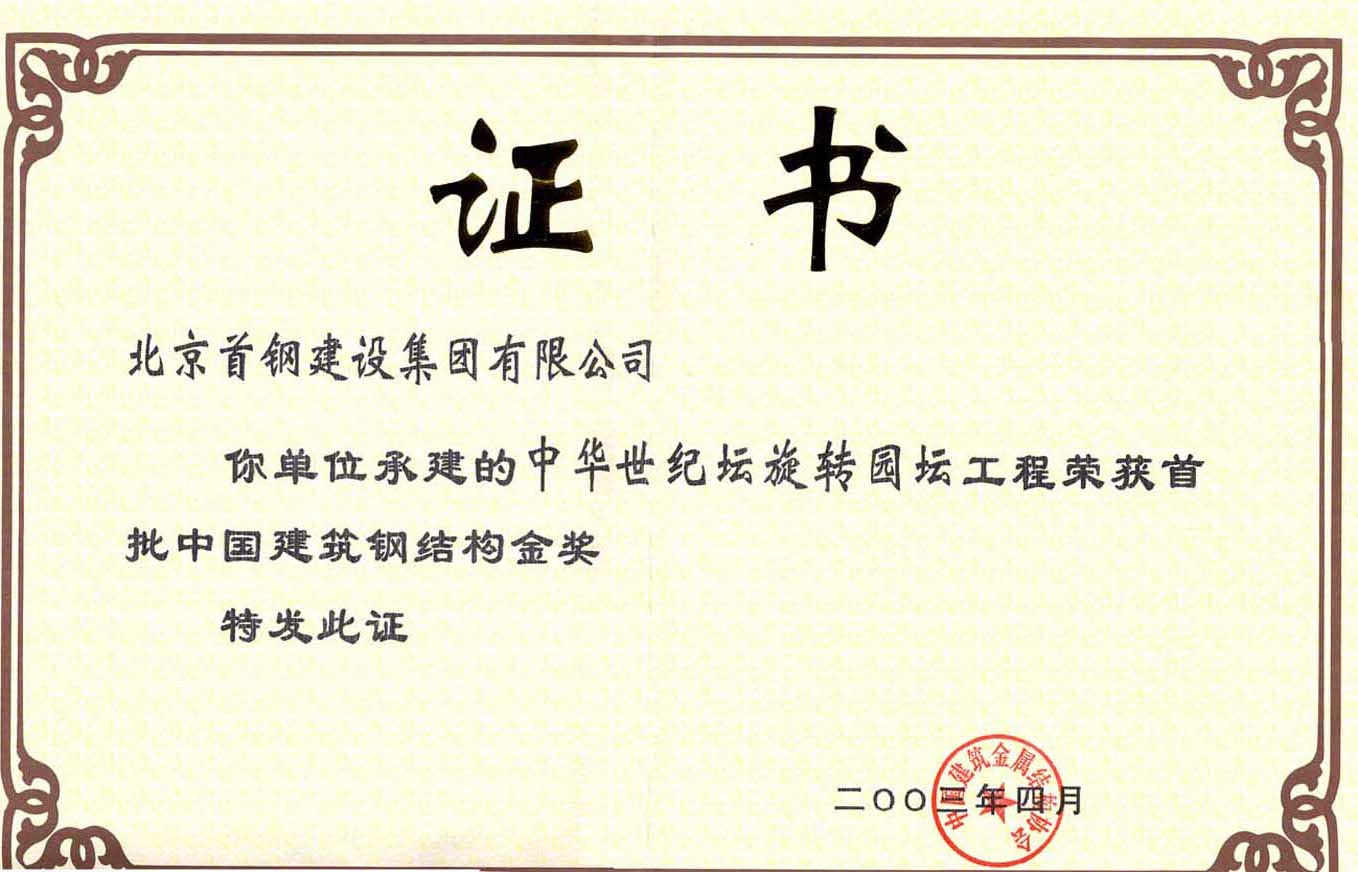 证书
北京首钢建设集团有限公司
你单位承建的中华世纪坛旋转园坛工程荣获首
批中国建筑钢结构金奖
特发此证
二〇〇三年四月
中国建筑金属结构协会